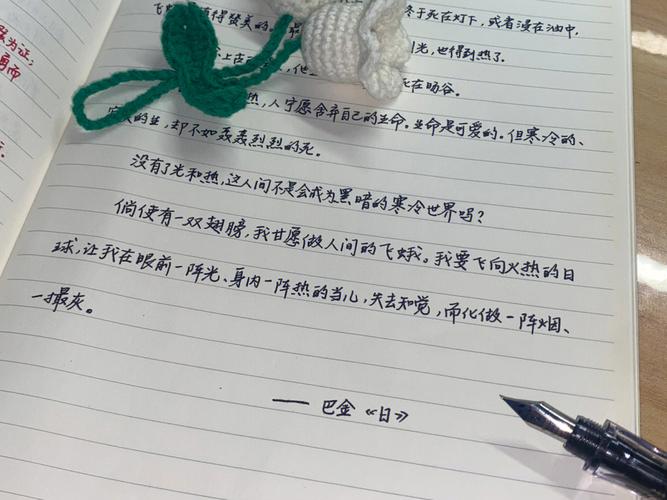 飞蛾 得赞美的。最 终于死在灯下，或者浸在油中，
光，也得到热了。
上古 他 死在旸谷。
热，人宁愿舍弃自己的生命。生命是可爱的。但寒冷的、
的生，却不如轰轰烈烈的死。
没有了光和热，这人间不是会成为黑暗的寒冷世界吗？
倘使有一双翅膀，我甘愿做人间的飞蛾。我要飞向火热的日
球，让我在眼前一阵光、身内一阵热的当儿，失去知觉，而化做一阵烟、
一撮灰。
—— 巴金《日》
为证；
而